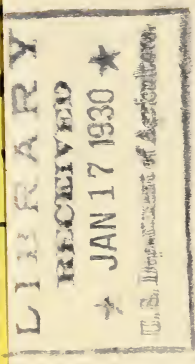 LIBRARY
RECEIVED
★ JAN 17 1930 ★
U.S. Department of Agriculture